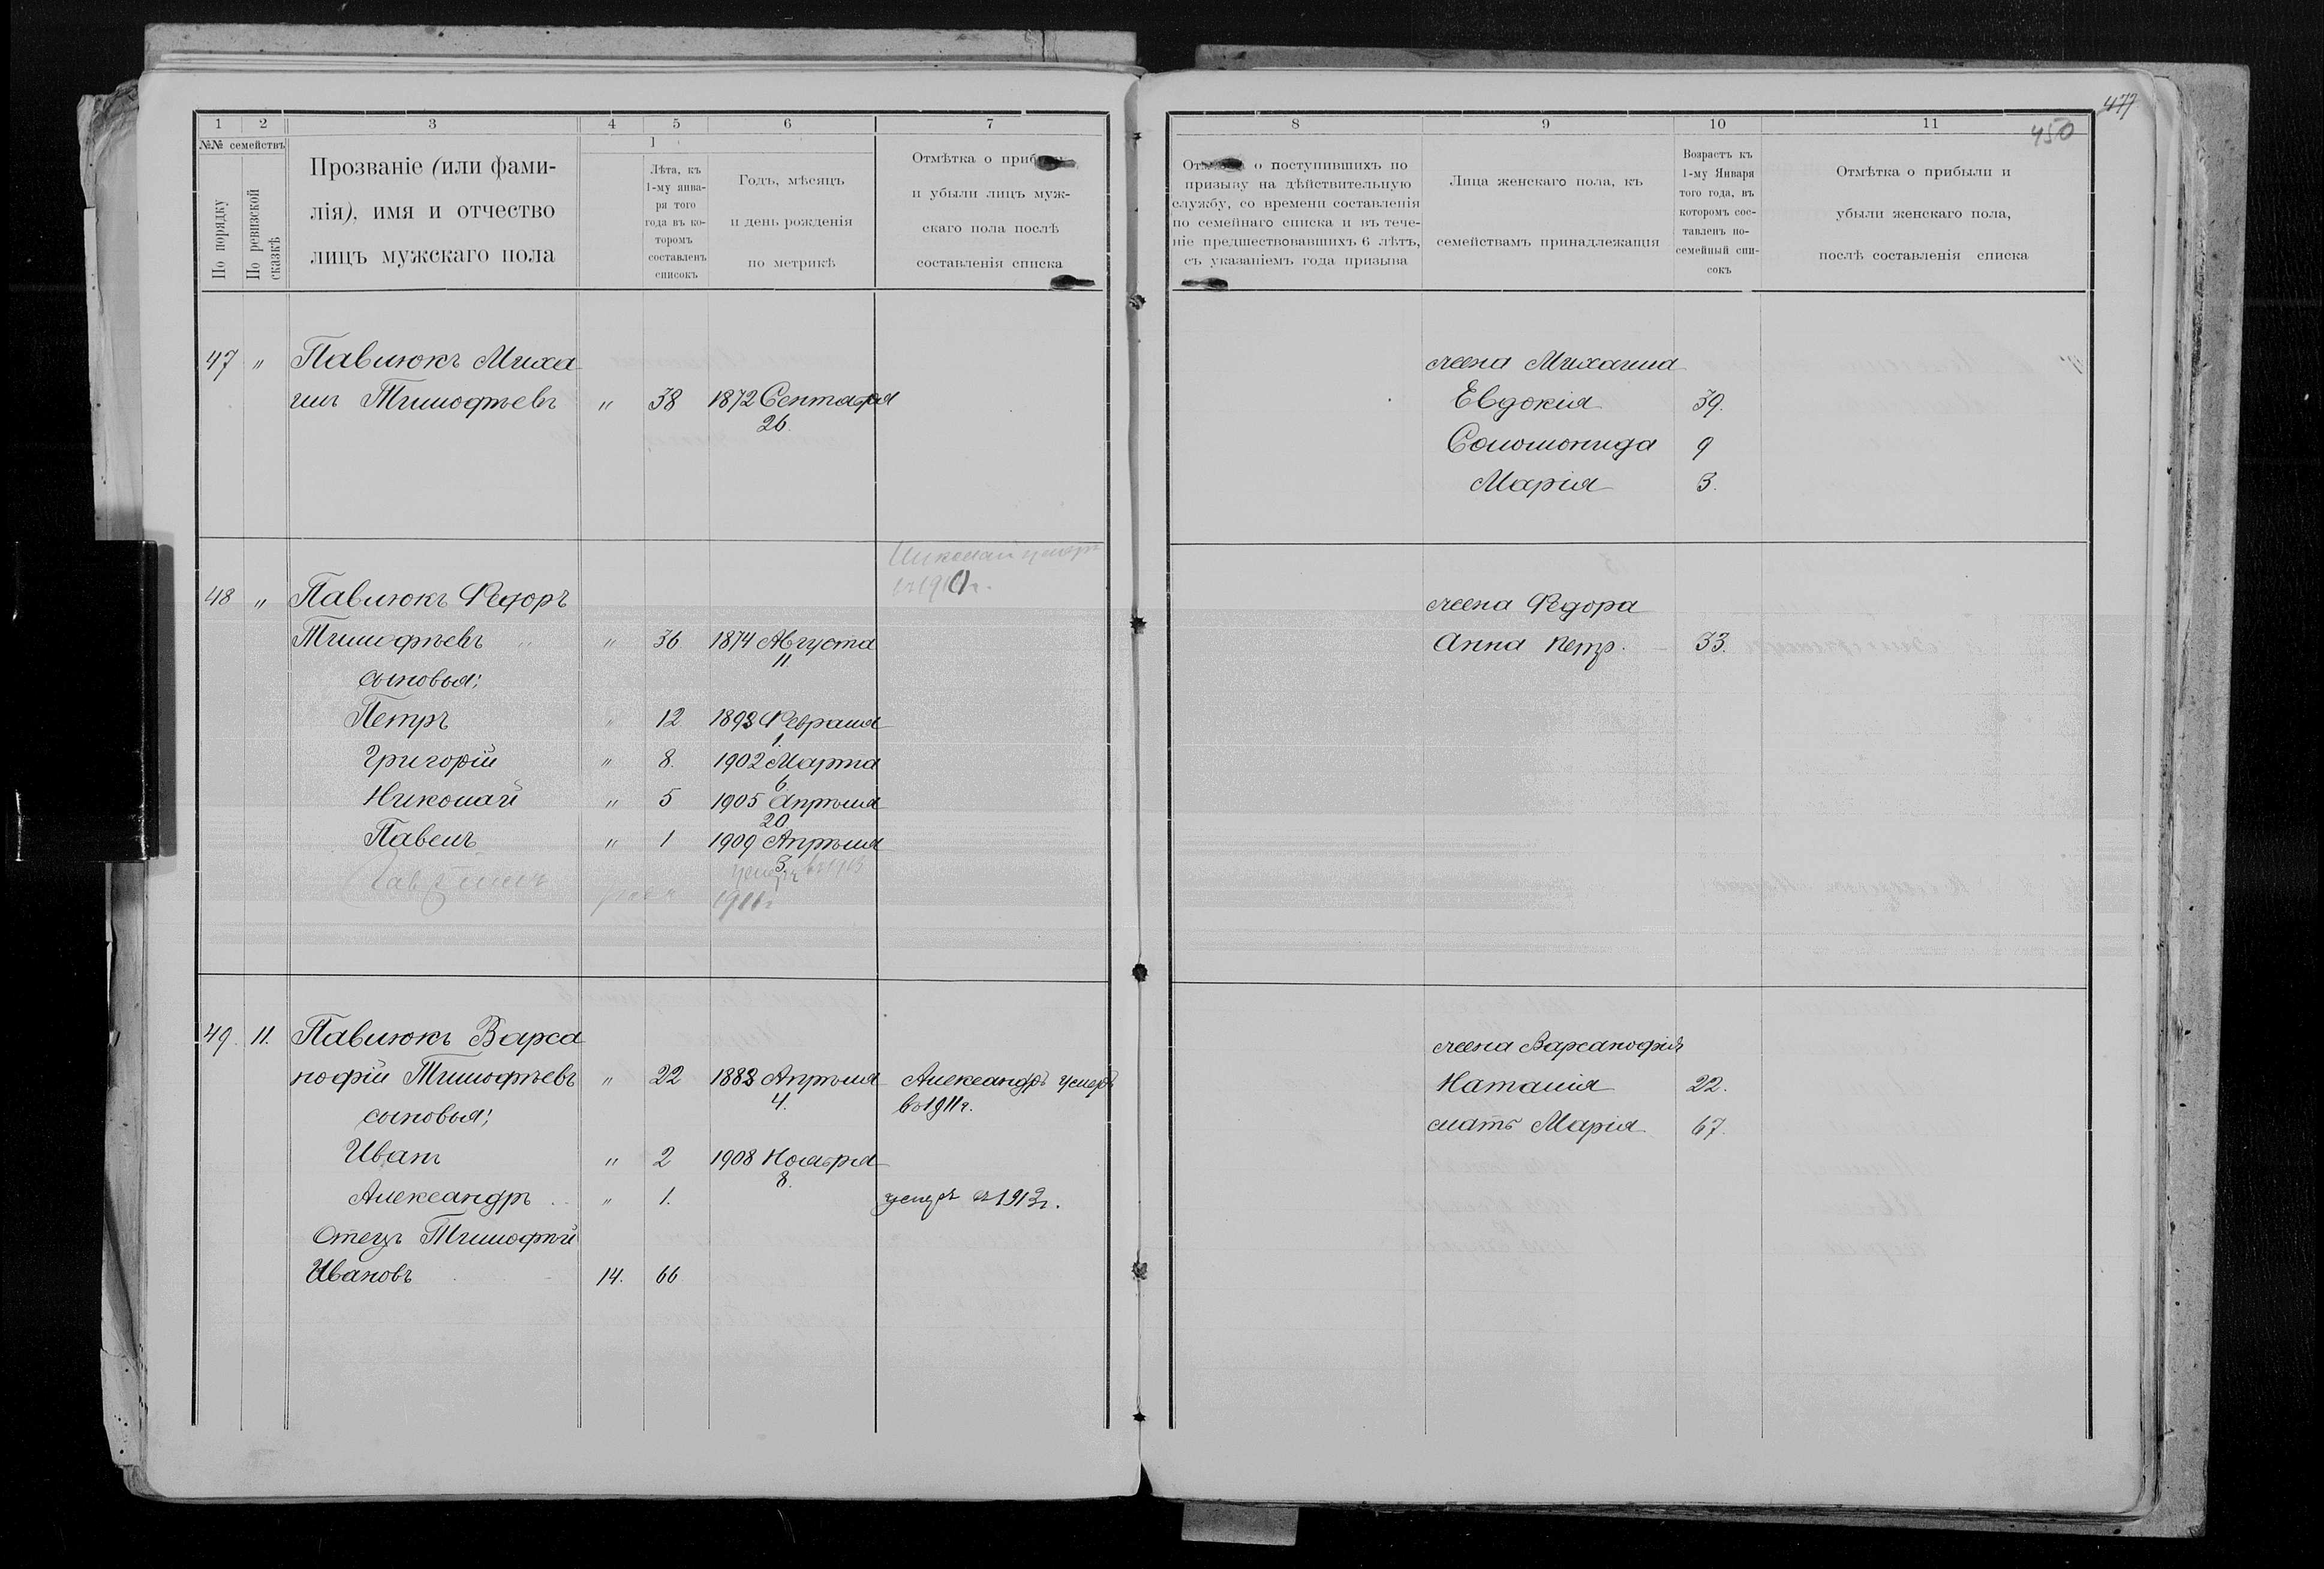 477
450
1 2 3 4 5 6 7
№№ семействъ
По порядку
По ревизской сказкѣ
Прозваніе (или фами-
лія), имя и отчество
лицъ мужскаго пола
1
Лѣта, къ
1-му янва-
ря того
года въ ко-
торомъ
составленъ
списокъ
Годъ, мѣсяцъ
и день рожденія
по метрикѣ
Отмѣтка о
и убыли лицъ муж-
скаго пола послѣ
составленія списка
8 9 10 11
о поступившихъ по
призыву на дѣйствительную
службу, со времени составленія
по семейнаго списка и въ тече-
ніе предшествовавшихъ 6 лѣтъ,
съ указаніемъ года призыва
Лица женскаго пола, къ
семействамъ принадлежащія
Возрастъ къ
1-му Января
того года, въ
которомъ сос-
тавленъ по-
семейный спи-
сокъ
Отмѣтка о прибыли и
убыли женскаго пола,
послѣ составленія списка
47 " Павлюкъ Миха
илъ Тимофѣевъ " 38 1872 Сентября
26.
жена Михаила
Евдокія 39.
Соломонида 9
Марія 3.
Николай умеръ
48 " Павлюкъ Ѳедоръ
Тимофѣевъ " 36 1874 Августа
11
сыновья;
Петръ " 12 1898 Февраля
1.
Григорій " 8. 1902 Марта
6
Николай " 5 1905 Апрѣля
20
Павелъ " 1 1909 Апрѣля
3
умеръ въ 1913
1911г
жена Ѳедора
Анна Петр. 33.
49. 11. Павлюкъ Варса
нофій Тимофѣевъ " 22 1888 Апрѣля Александръ умеръ
4. въ 1911г.
сыновья;
Иванъ " 2 1908 Ноября
8.
Александръ " 1. умеръ въ 1912г.
Отецъ Тимофѣй
Ивановъ 14. 66
жена Варсанофія
Наталія 22.
мать Марія 67.